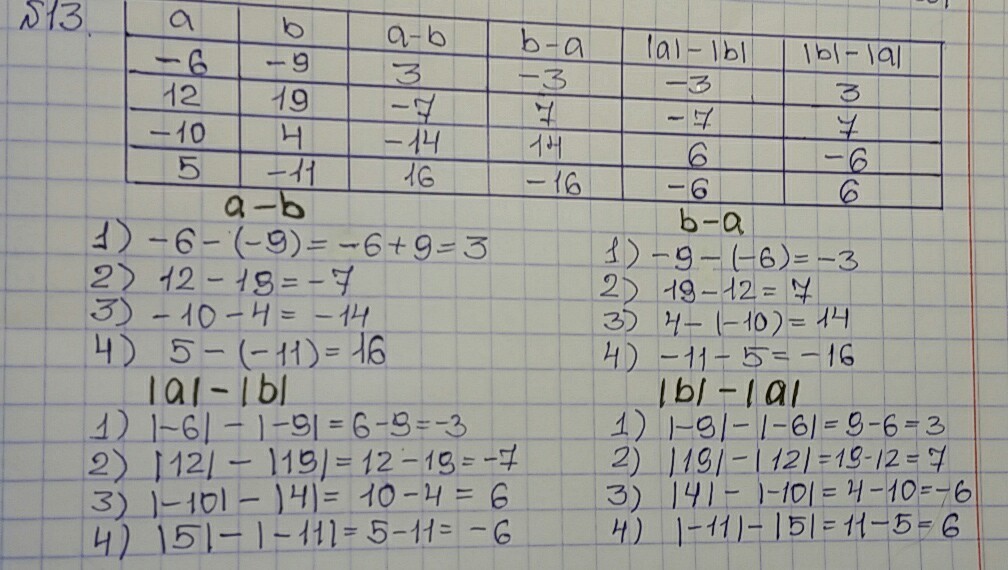 №13.
a b a-b b-a |a|-|b| |b|-|a|
-6 -9 3 -3 -3 3
12 19 -7 7 -7 7
-10 4 -14 14 6 -6
5 -11 16 -16 -6 6
a-b
1) -6-(-9)=-6+9=3
2) 12-19=-7
3) -10-4=-14
4) 5-(-11)=16
b-a
1) -9-(-6)=-3
2) 19-12=7
3) 4-(-10)=14
4) -11-5=-16
|a|-|b|
1) |-6|-|-9|=6-9=-3
2) |12|-|19|=12-19=-7
3) |-10|-|4|=10-4=6
4) |5|-|-11|=5-11=-6
|b|-|a|
1) |-9|-|-6|=9-6=3
2) |19|-|12|=19-12=7
3) |4|-|-10|=4-10=-6
4) |-11|-|5|=11-5=6